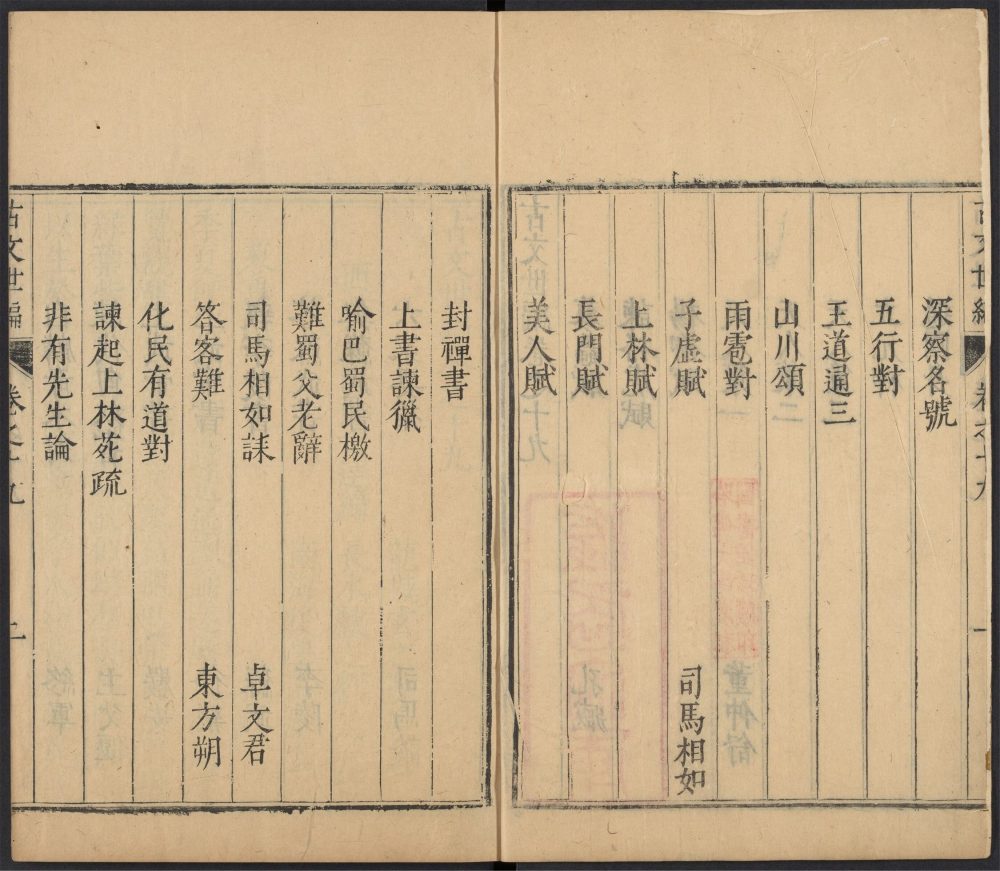 古文世編 卷之十九 一
深察名號
五行對
王道通三
山川頌
雨雹對
子虛賦 司馬相如
上林賦
長門賦
美人賦
封禪書
上書諫獵
喻巴蜀民檄
難蜀父老辭
司馬相如誄 卓文君
答客難 東方朔
化民有道對
諫起上林苑疏
非有先生論
古文世編 卷之十九 二